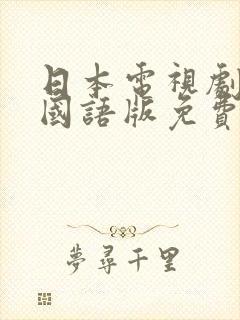 日本電視劇
國語版免費
夢尋千里